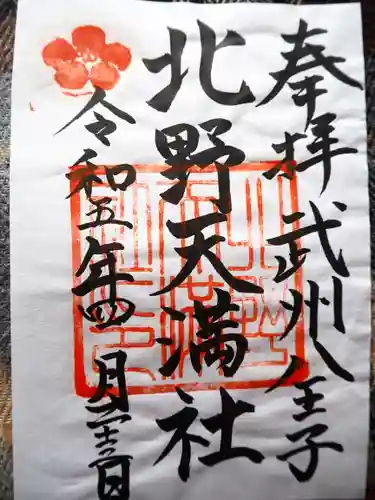 奉拝 武州八王子
北野天満社
令和五年四月二十三日